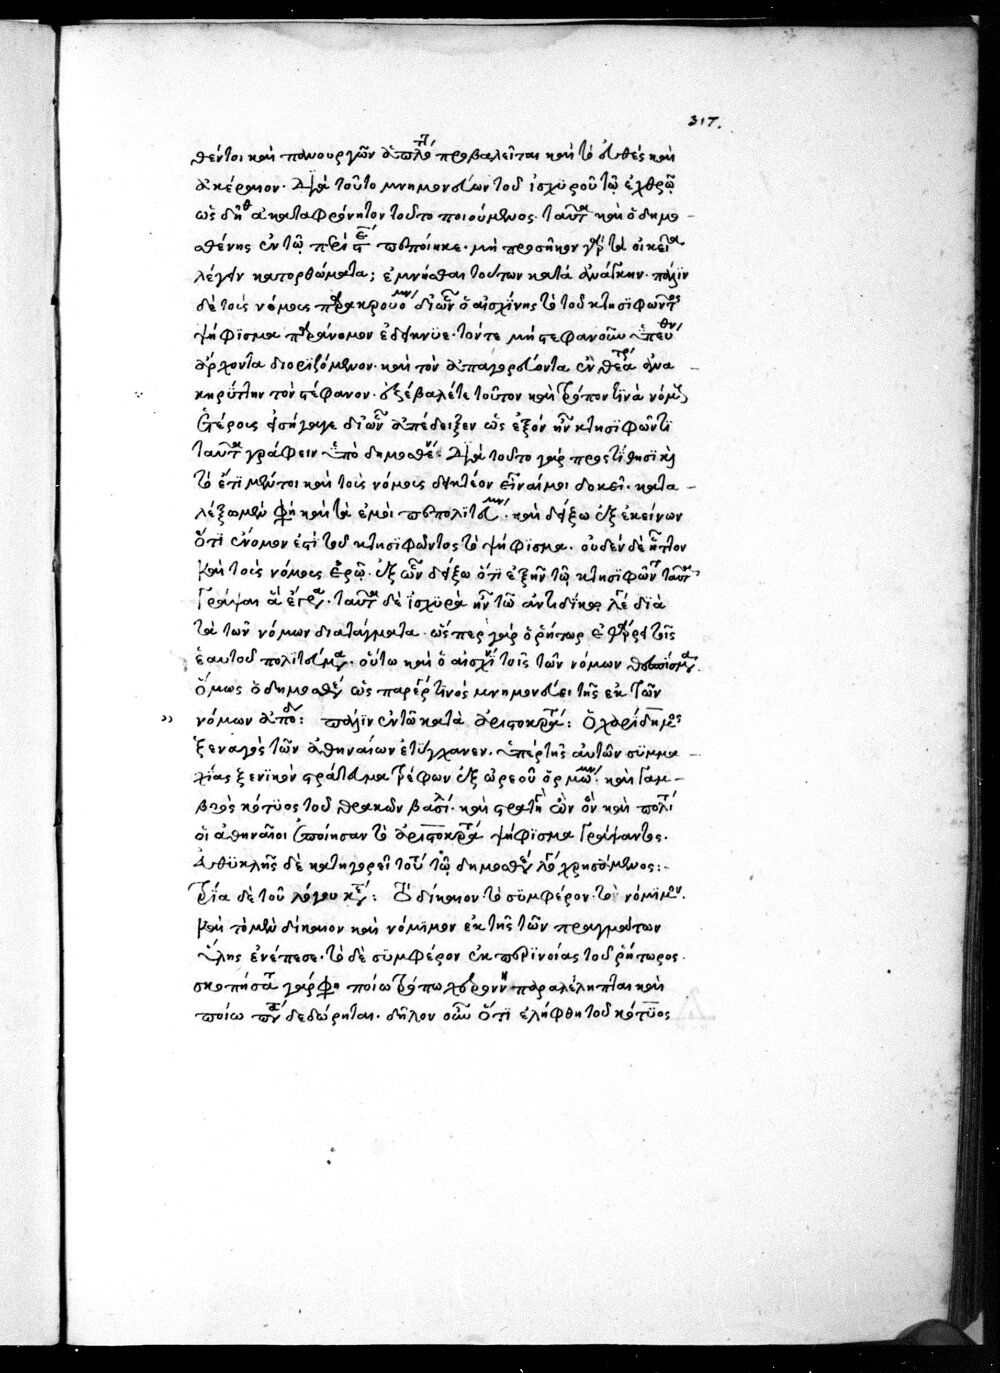 317.
θέντοι καὶ πανουργῶν ἁπλό προβαλεῖται καὶ τὸ εὐηθὲς καὶ
ἀκέραιον. διὰ τοῦτο μνημονεύων τοῦ ἰσχυροῦ τῷ ἐχθρῷ
ὡς δῆθ ἀκαταφρόνητον τοῦτο ποιούμενος. ταῦτα καὶ ὁ δημο
σθένης ἐν τῷ περὶ στ πεποίηκε. μὴ προσῆκον γὰρ τὰ οἰκεῖα
λέγειν κατορθώματα; ἐμνήσθαι τούτων κατὰ ἀνάγκην. πάλιν
δὲ τοῖς νόμοις παρακρουομν δι' ὧν ὁ αἰσχίνης τὸ τοῦ κτησιφῶντος
ψήφισμα παράνομον ἐδείκνυε. τόν τε μὴ στεφανοῦν ὑπεύθν
ἄρχοντα διοριζόμενον. καὶ τὸν ἀπαγορεύοντα ἐν θεάτρ ἀνα
κηρύττειν τὸν στέφανον. ἐξέβαλέ τε τοῦτον καὶ τρόπον τινὰ νόμοις
ἑτέροις εἰσήγαγε δι' ὧν ἀπέδειξεν ὡς ἐξὸν ἦν κτησιφῶντι
ταῦτα γράφειν ὑπὸ δημοσθέν. διὰ τοῦτο γὰρ προστίθησι καὶ
τὸ ἔτι μέντοι καὶ τοῖς νόμοις δεικτέον εἶναί μοι δοκεῖ. κατα
λέξω μὲν φη καὶ τὰ ἐμοὶ πεπολιτευμν. καὶ δείξω ἐξ ἐκείνων
ὅτι ἔννομον ἐπὶ τοῦ κτησιφῶντος τὸ ψήφισμα. οὐδὲν δὲ ἧττον
καὶ τοὺς νόμους ἐρῶ. ἐξ ὧν δείξω ὅτι ἐξῆν τῷ κτησιφῶντ ταῦτα
γράψαι ἃ ἔγρα. ταῦτα δὲ ἰσχυρὰ ἦν τῷ ἀντιδίκῳ λέ διὰ
τὰ τῶν νόμων διατάγματα. ὥσπερ γὰρ ὁ ῥήτωρ
ἑαυτοῦ πολιτεύμα. οὕτω καὶ ὁ αἰσχίν τοῖς τῶν νόμων
ὅμως ὁ δημοσθέν ὡς παρέρ τινὸς μνημονεύει τῆς ἐκ τῶν
νόμων ἀπολ: πάλιν ἐν τῷ κατὰ ἀριστοκράτ: ὁ χαρίδημος
ξεναγὸς τῶν ἀθηναίων ἐτύγχανεν. ὑπὲρ τῆς αὐτῶν συμμα
χίας ξενικὸν στράτευμα τρέφων ἐξ ὠρεοῦ ὁρμώμν. καὶ γαμ
βρὸς κότυος τοῦ θρακῶν βασιλ. καὶ στρατηγ ὢν ὃν καὶ πολί
οἱ ἀθηναῖοι ἐποίησαν τὸ ἀριστοκράτ ψήφισμα γράψαντος.
εὐθυκλῆς δὲ κατηγορεῖ τούτ τῷ δημοσθέν λόγ χρησάμενος:
τρία δὲ τοῦ λόγου κε: τὸ δίκαιον. τὸ συμφέρον. τὸ νόμιμον.
καὶ τὸ μὲν δίκαιον καὶ νόμιμον ἐκ τῆς τῶν πραγμάτων
ὕλης ἐνέπεσε. τὸ δὲ συμφέρον ἐκ περινοίας τοῦ ῥήτορος.
σκοπήσατ γάρ φη ποίῳ τρόπῳ χερρόνν παραλέληπται καὶ
ποίῳ δεδώρηται. δῆλον οὖν ὅτι ἐλήφθη τοῦ κότυος